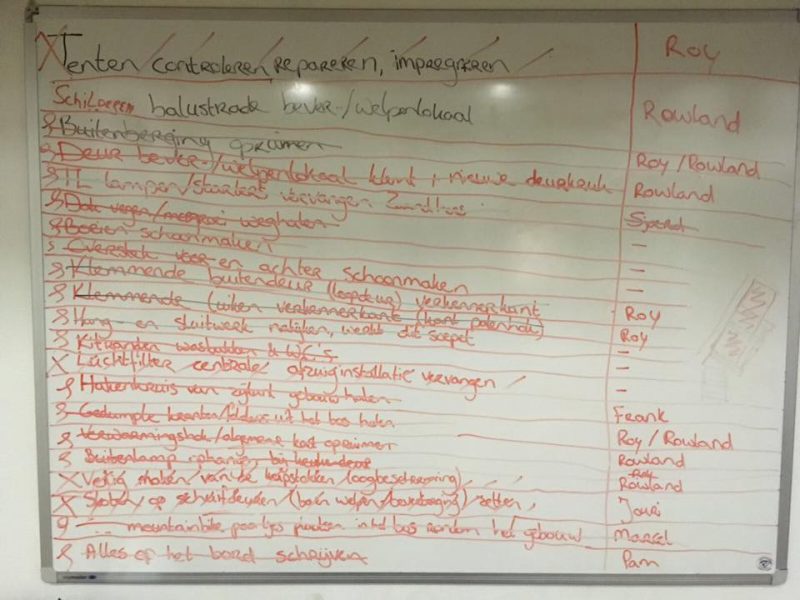 X Tenten controleren, repareren, impregneren Roy
Schilderen balustrade bever-/welpenlokaal Rowland
Buitenberging opruimen
Deur bever-/welpenlokaal klemt + nieuwe deurkruk Roy / Rowland
TL lampen/starters vervangen Rowland
Dak vegen/ weghalen Sjoerd
Boeien schoonmaken -
Overstek voor- en achter schoonmaken -
Klemmende buitendeur (loopdeur) verkennerkant -
Klemmende luiken verkennerkant (kant palenhok) Roy
Hang- en sluitwerk nalopen, werkt dit soepel Roy
Kitranden wasbakken & WC's -
X Luchtfilter centrale afzuiginstallatie vervangen -
Hakenkruis van zijkant gebouw halen -
Gedumpte kranten/folders uit het bos halen Frank
Verwarmingshok/algemene kast opruimen Roy / Rowland
Buitenlamp ophangen, bij keukendeur Rowland
X Veilig maken van de (oogbescherming) Roy Rowland
X op schuifdeuren (bain welpen/beverberging) zetten Jouri
mountainbike paaltjes plaatsen in het bos rondom het gebouw Marcel
Alles op het bord schrijven Pam